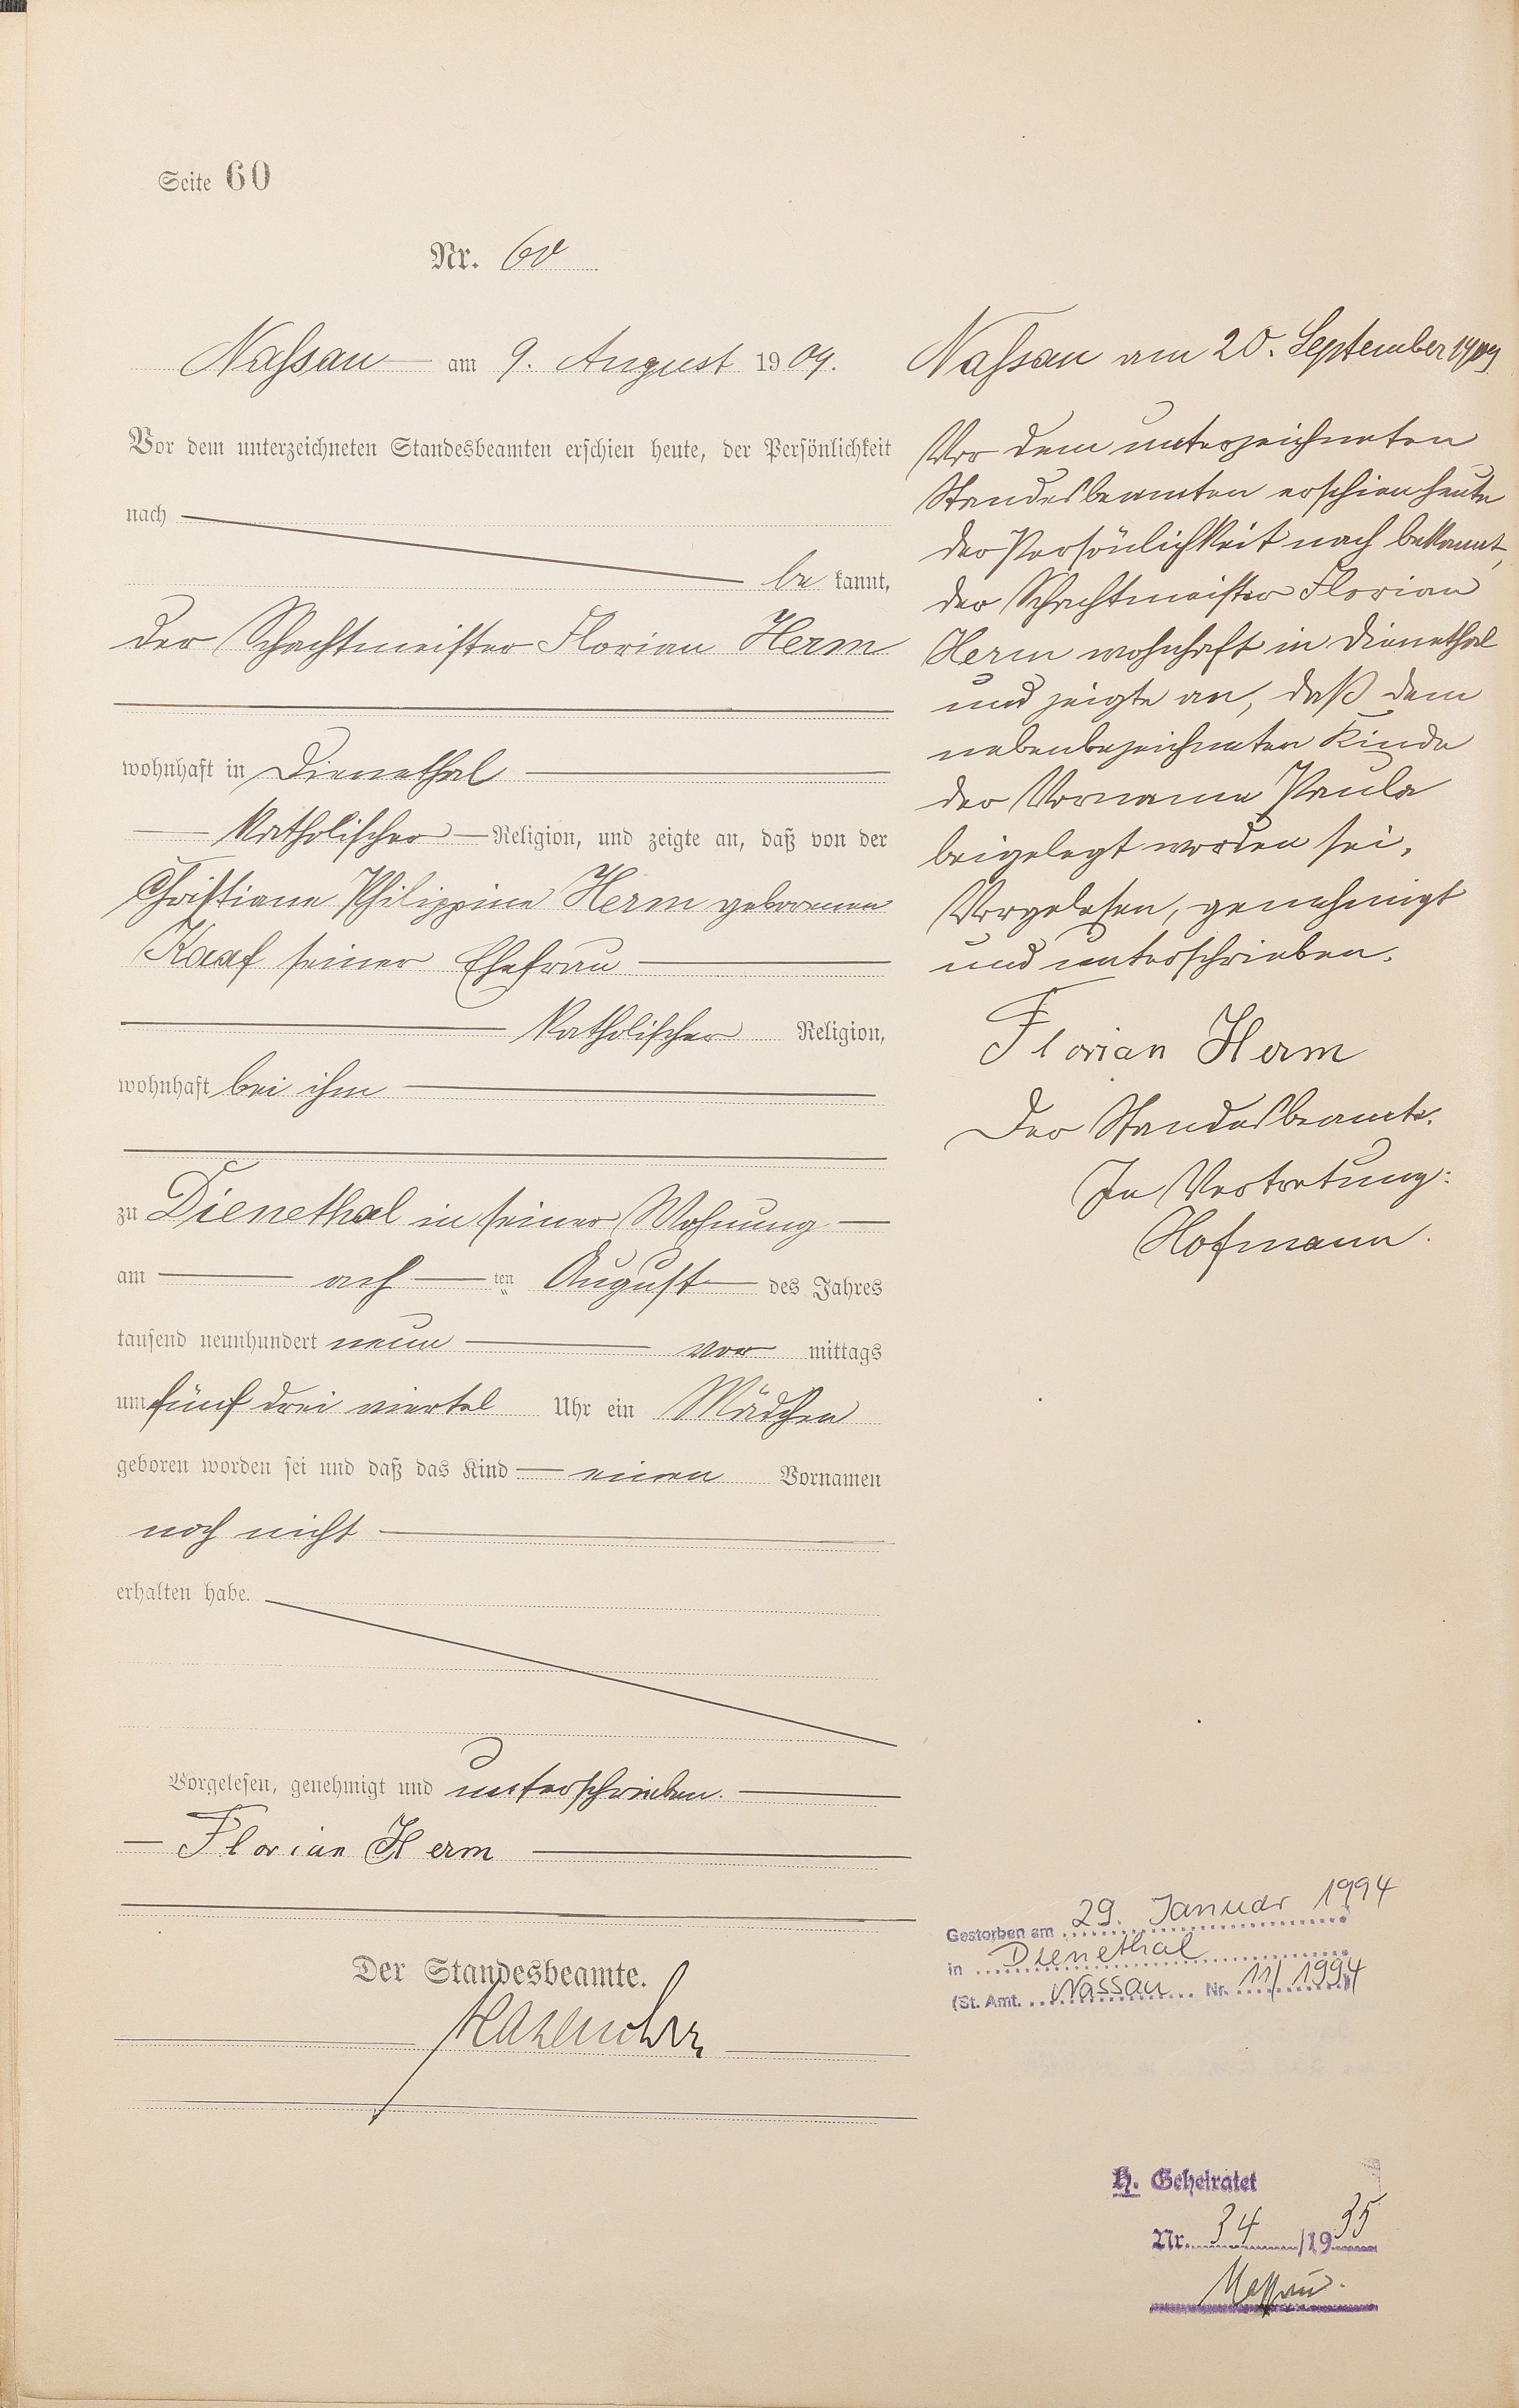 Seite 60
Nr. 60
Nassau am 9. August 1909.
Vor dem unterzeichneten Standesbeamten erschien heute, der Persönlichkeit
nach
be kannt,
der Schachtmeister Florian Herm
wohnhaft in Dienethal
katholischer Religion, und zeigte an, daß von der
Christiane Philippine Herm geborenen
Kaaf seiner Ehefrau
katholischer Religion,
wohnhaft bei ihm
zu Dienethal in seiner Wohnung
am ach ten August des Jahres
tausend neunhundert neun vor mittags
um fünf drei viertel Uhr ein Mädchen
geboren worden sei und daß das Kind einen Vornamen
noch nicht
erhalten habe.
Vorgelesen, genehmigt und unterschrieben.
Florian Herm
Der Standesbeamte.
Nassau am 20. September 1909
Vor dem unterzeichneten
Standesbeamten erschien heute
der Persönlichkeit nach bekannt,
der Schachtmeister Florian
Herm wohnhaft in Dienethal
und zeigte an, daß dem
nebenbezeichneten Kinde
der Vorname Paula
beigelegt worden sei.
Vorgelesen, genehmigt
und unterschrieben.
Florian Herm
Der Standesbeamte.
In Vertretung:
Hofmann.
Gestorben am 29. Januar 1994
in Dienethal
(St. Amt. Nassau Nr. 11/1994)
H. Geheiratet
Nr. 34 /1935
Nassau.